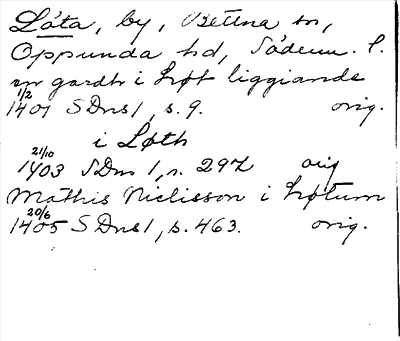 Låta, by, Bettna sn,
Oppunda hd, Söderm. l.
en gardh i Løt liggiande
1/2
1401 SDns 1, s. 9. orig.
i Løth
21/10
1403 SDns 1, s. 297 orig
Mathis Niclisson i Løtum
20/6
1405 SDns 1, s. 463. orig.